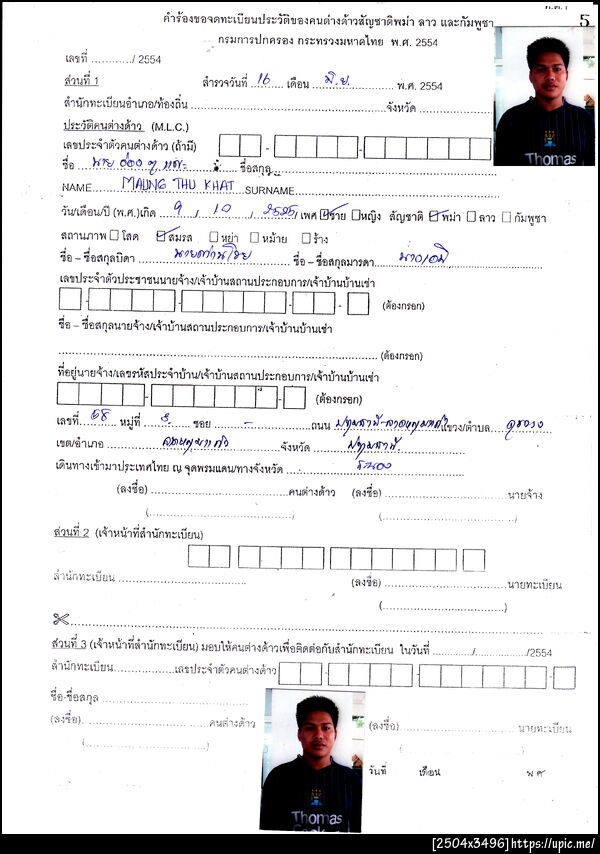 ท.ต.1
5
คำร้องขอจดทะเบียนประวัติของคนต่างด้าวสัญชาติพม่า ลาว และกัมพูชา
กรมการปกครอง กระทรวงมหาดไทย พ.ศ. 2554
เลขที่ ............/ 2554
ส่วนที่ 1 สำรวจวันที่ 16 เดือน มิ.ย. พ.ศ. 2554
สำนักทะเบียนอำเภอ/ท้องถิ่น ............ จังหวัด ............
ประวัติคนต่างด้าว (M.L.C.)
เลขประจำตัวคนต่างด้าว (ถ้ามี)
ชื่อ นาย ชื่อสกุล
NAME MAUNG THU KHAT SURNAME
วัน/เดือน/ปี (พ.ศ.)เกิด 9 / 10 / 2525 / เพศ ชาย หญิง สัญชาติ พม่า ลาว กัมพูชา
สถานภาพ โสด สมรส หย่า หม้าย ร้าง
ชื่อ – ชื่อสกุลบิดา ชื่อ – ชื่อสกุลมารดา
เลขประจำตัวประชาชนนายจ้าง/เจ้าบ้านสถานประกอบการ/เจ้าบ้านบ้านเช่า
(ต้องกรอก)
ชื่อ – ชื่อสกุลนายจ้าง/เจ้าบ้านสถานประกอบการ/เจ้าบ้านบ้านเช่า
(ต้องกรอก)
ที่อยู่นายจ้าง/เลขรหัสประจำบ้าน/เจ้าบ้านสถานประกอบการ/เจ้าบ้านบ้านเช่า
(ต้องกรอก)
เลขที่ 68 หมู่ที่ 3 ซอย - ถนน ปทุมธานี-ลาดหลุมแก้ว แขวง/ตำบล คูขวาง
เขต/อำเภอ ลาดหลุมแก้ว จังหวัด ปทุมธานี
เดินทางเข้ามาประเทศไทย ณ จุดพรมแดน/ทางจังหวัด ระนอง
(ลงชื่อ) ............ คนต่างด้าว (ลงชื่อ) ............ นายจ้าง
(............) (............)
ส่วนที่ 2 (เจ้าหน้าที่สำนักทะเบียน)
สำนักทะเบียน ............ (ลงชื่อ) ............ นายทะเบียน
(............)
ส่วนที่ 3 (เจ้าหน้าที่สำนักทะเบียน) มอบให้คนต่างด้าวเพื่อติดต่อกับสำนักทะเบียน ในวันที่ ............/............/2554
สำนักทะเบียน ............ เลขประจำตัวคนต่างด้าว
ชื่อ-ชื่อสกุล ............
(ลงชื่อ) ............ คนต่างด้าว (ลงชื่อ) ............ นายทะเบียน
(............) (............)
วันที่ เดือน พ ศ
Thomas
Thomas
[2504x3496]https://upic.me/